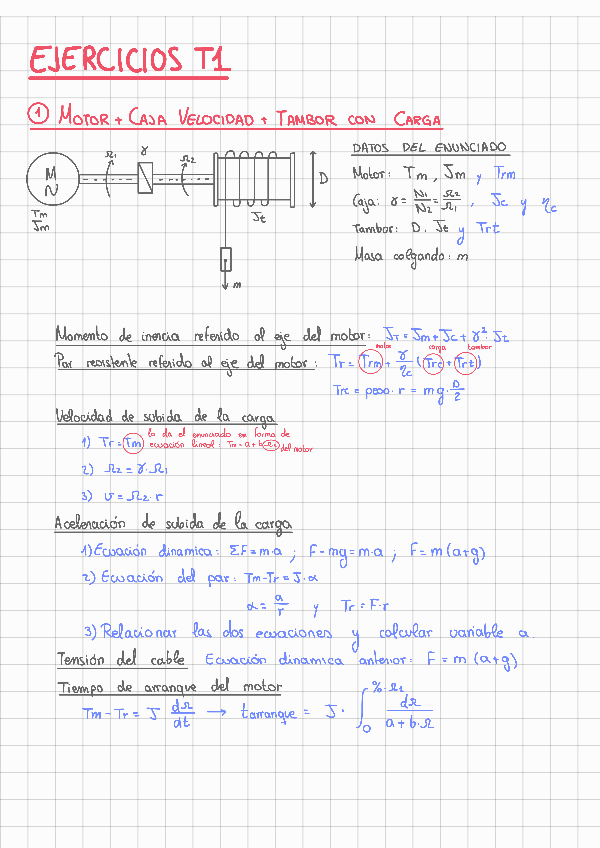 EJERCICIOS T1
① MOTOR + CAJA VELOCIDAD + TAMBOR CON CARGA
DATOS DEL ENUNCIADO
Ω1 γ Ω2
M
N
D
Tm
Jm
Jt
m
Motor: Tm, Jm y Trm
Caja: γ = N1/N2 = Ω2/Ω1, Jc y ηc
Tambor: D, Jt y Trt
Masa colgando: m
Momento de inercia referido al eje del motor: JT = Jm + Jc + γ²· Jt
Par resistente referido al eje del motor: Tr = Trm + γ/ηc (Trc + Trt)
motor carga tambor
Trc = peso · r = mg · D/2
Velocidad de subida de la carga
1) Tr = Tm lo da el enunciado en forma de
ecuación lineal: Tm = a + b Ω del motor
2) Ω2 = γ·Ω1
3) v = Ω2 · r
Aceleración de subida de la carga
1) Ecuación dinamica: ΣF = m·a ; F - mg = m·a ; F = m (a+g)
2) Ecuación del par: Tm - Tr = J · α
α = a/r y Tr = F·r
3) Relacionar las dos ecuaciones y calcular variable a.
Tensión del cable Ecuación dinamica anterior: F = m (a+g)
Tiempo de arranque del motor
Tm - Tr = J dΩ/dt → tarranque = J · ∫0^%·Ω1 dΩ/(a + b·Ω)